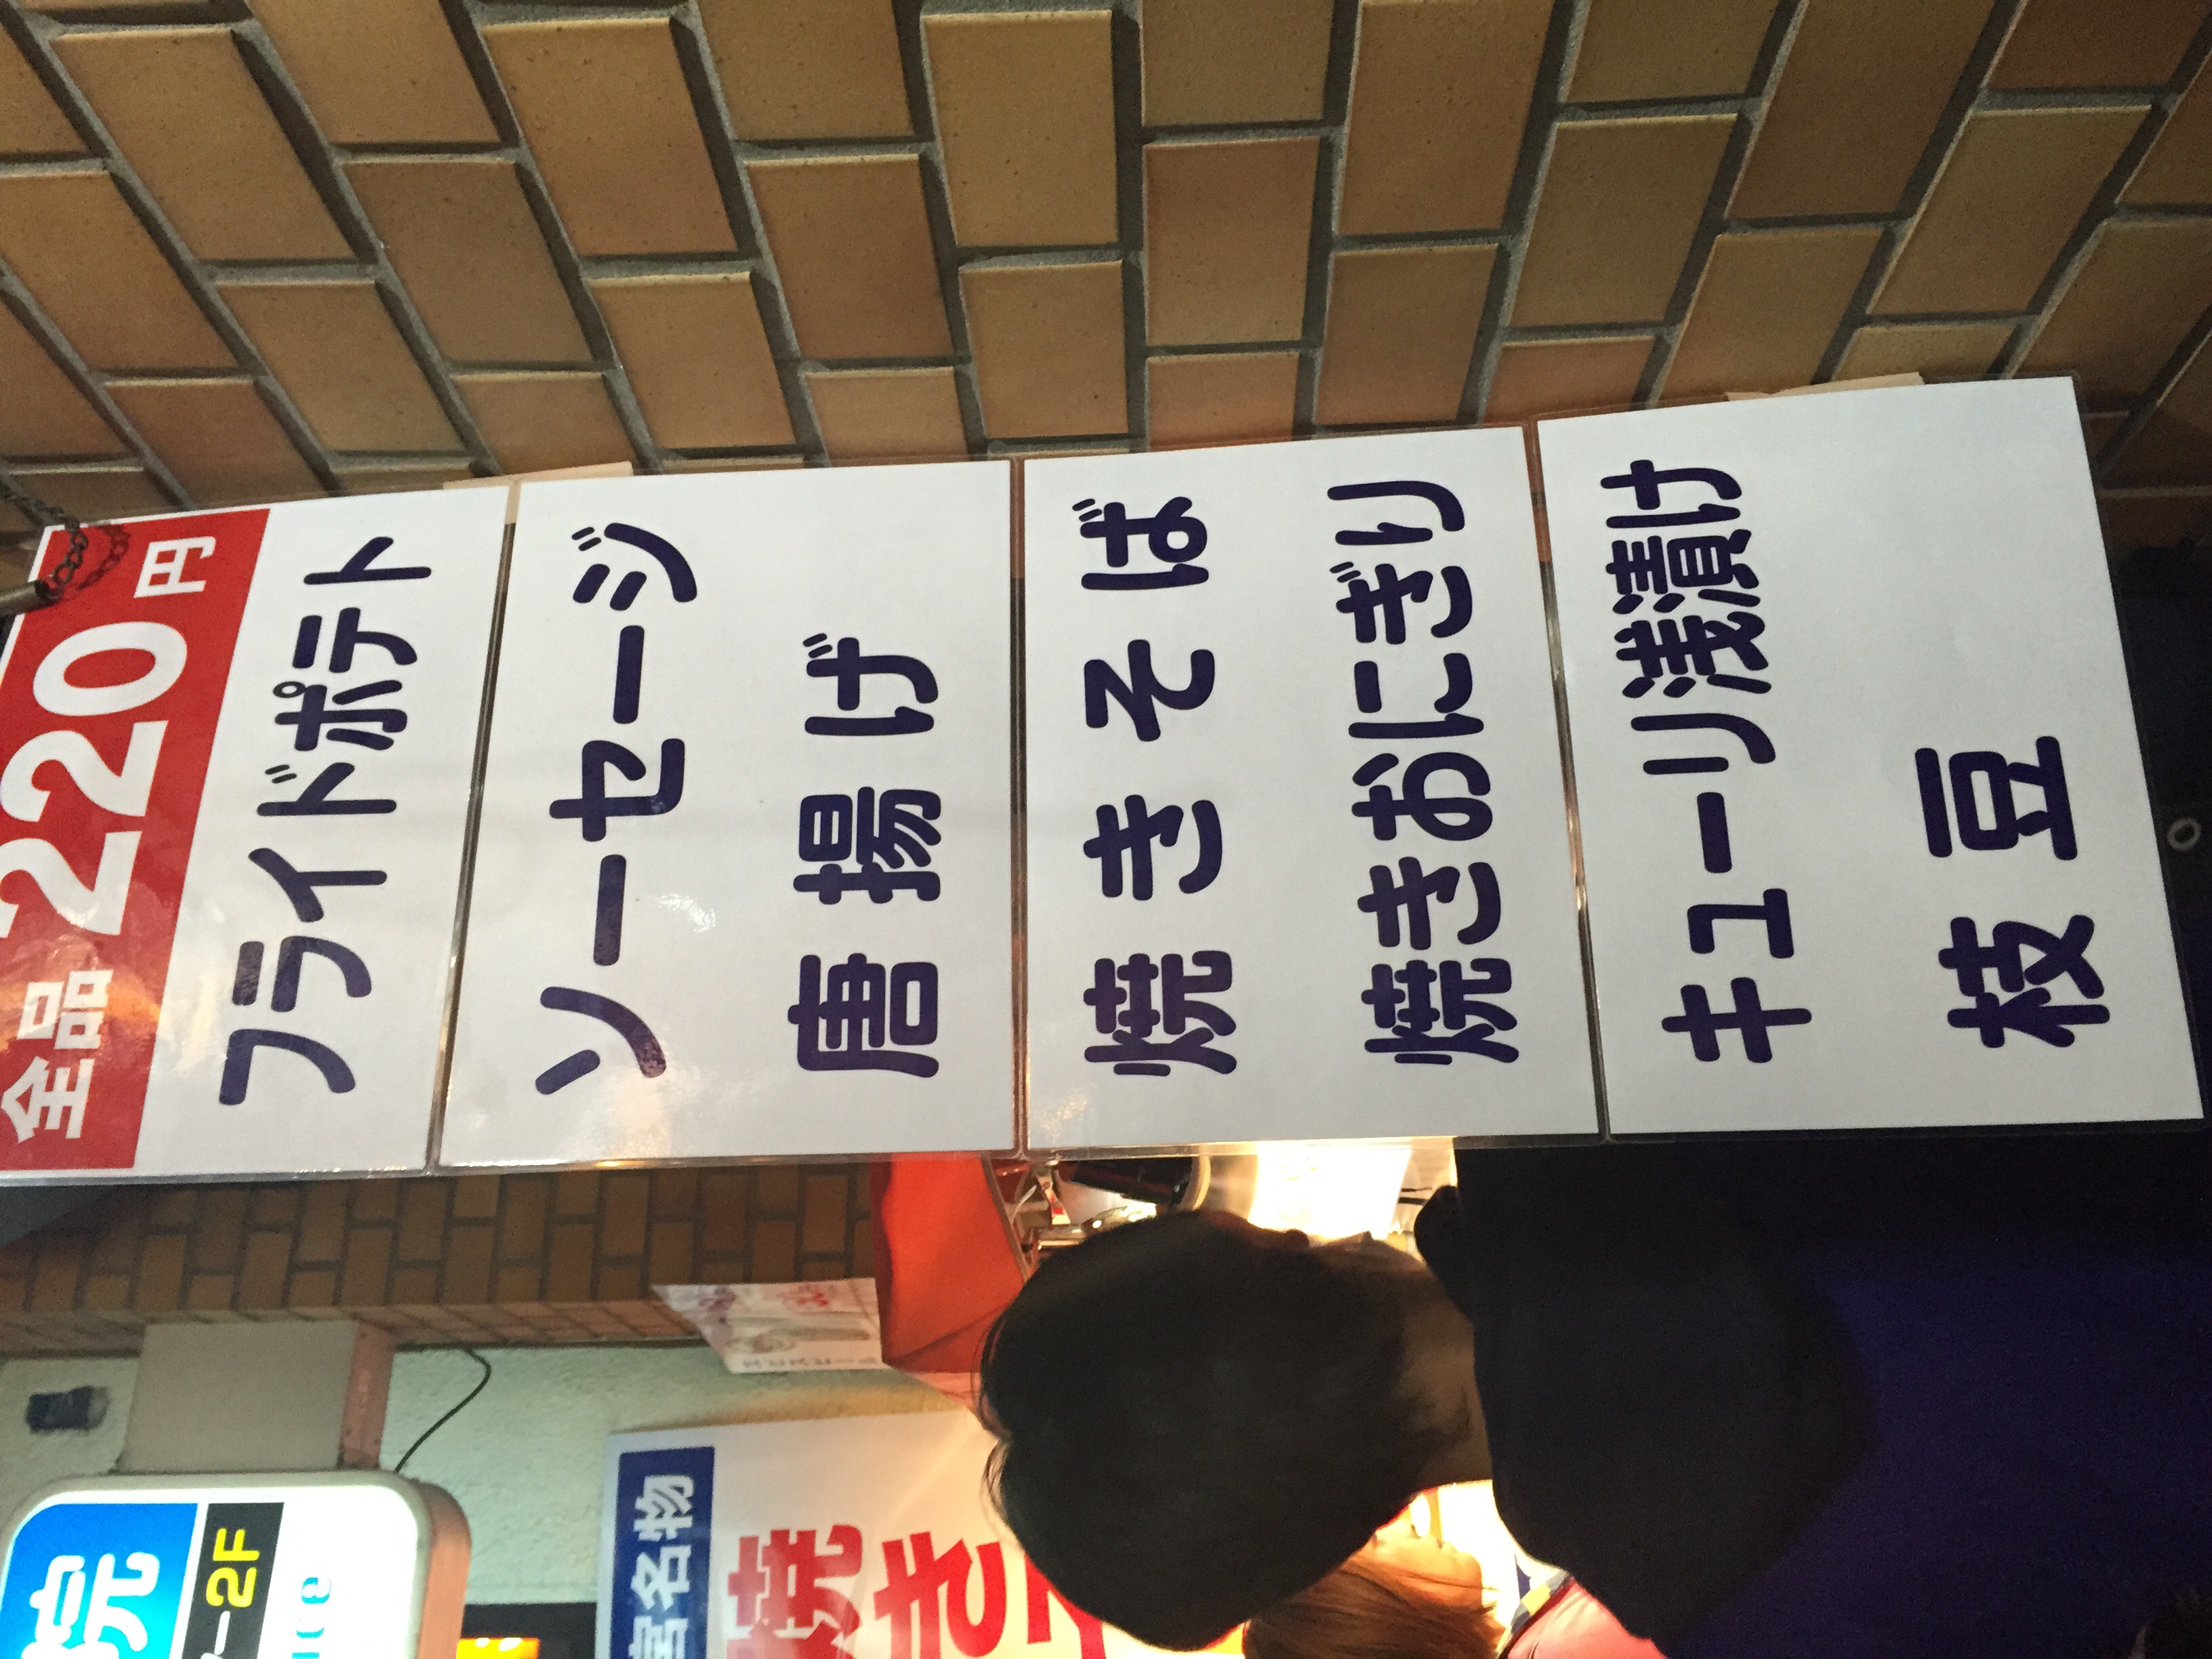 全品220円
フライドポテト
ソーセージ
唐揚げ
焼きそば
焼きおにぎり
キューリ浅漬け
枝豆
名物
焼き
院
-2F